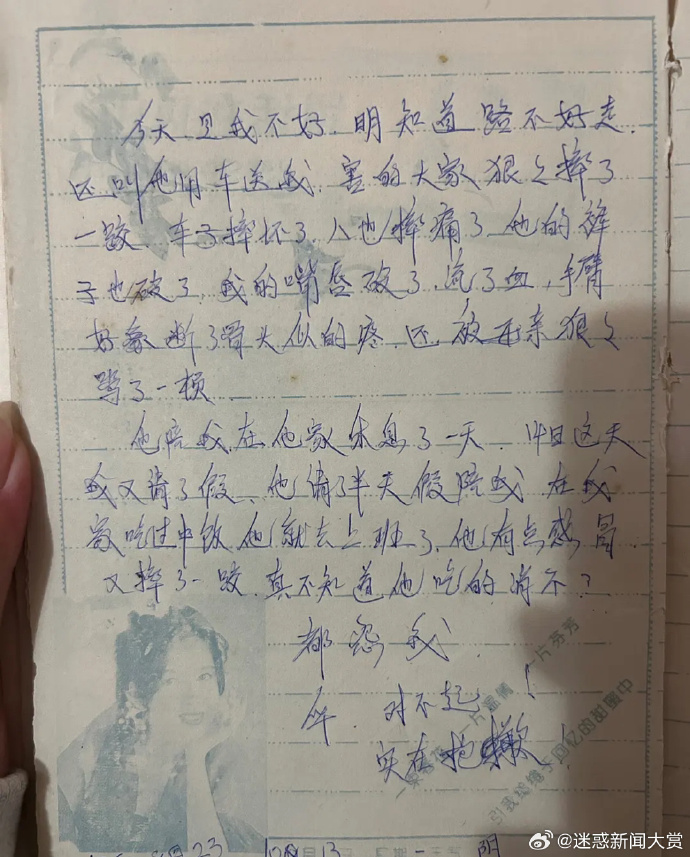 今天是我不好.明知道路不好走.
还叫他用车送我.害的大家狠々摔了
一跤.车子摔坏了.人也摔痛了.他的裤
子也破了.我的嘴唇破了.流了血.手臂
好象断了骨头似的疼.还被母亲狠々
骂了一顿.
他陪我在他家休息了一天.14日这天
我又请了假.他请了半天假陪我.在我
家吃过中饭他就去上班了.他有点感冒.
又摔了一跤.真不知道他吃的消不?
都怨我.
对不起!
实在抱歉!
一片温情 一片芬芳
引我珍绪于回忆的甜蜜中
23
13
阴
@迷惑新闻大赏